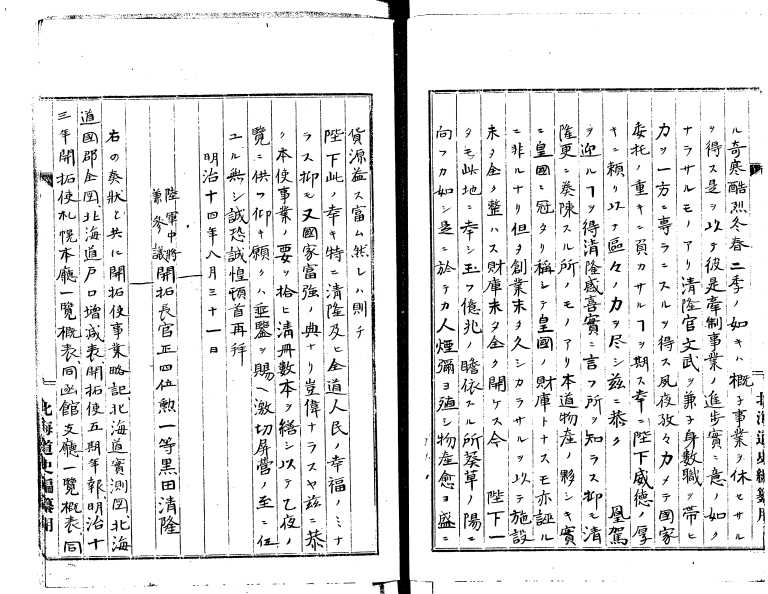 ル奇寒酷烈冬春二季ノ如キハ概子事業ヲ休セサル
ヲ得ス是ヲ以テ彼是牽制事業ノ進步實ニ意ノ如ク
ナラサルモノアリ清隆官文武ヲ兼子身數職ヲ帶ヒ
力ヲ一方ニ專ラニスルヲ得ス風夜孜々力メテ國家
委托ノ重キニ負カサルヿヲ期ス幸ニ陛下威德ノ厚
キニ賴リ以テ區々ノ力ヲ尽シ茲ニ恭ク　鳳駕
ヲ迎ルヿヲ得清隆感喜實ニ言フ所ヲ知ラス抑モ清
隆更ニ奏陳スル所ノモノアリ本道物產ノ夥シキ實
ニ皇國ニ冠タリ稱シテ皇國ノ財庫トナスモ亦誣ル
ニ非ルナリ但タ創業未タ久シカラサルヲ以テ施設
未タ全ク整ハス財庫未タ全ク開ケス今　陛下一
タモ此地ニ幸シ玉フ億兆ノ瞻依スル所葵草ノ陽ニ
向フカ如シ是ニ於テカ人煙彌ヨ殖シ物產愈ヨ盛ニ
北海道史編纂用
貨源益ス富ム然レハ則チ
陛下此ノ幸キ特ニ清隆及ヒ全道人民ノ幸福ノミナ
ラス抑モ又國家富強ノ典ナリ豈偉ナラスヤ茲ニ恭
ク本使事業ノ要ヲ拾ヒ清冊數本ヲ繕シ以テ乙夜ノ
覽ニ供フ仰キ願クハ垂鑒ヲ賜ヘ激切屏營ノ至ニ任
ユル無シ誠恐誠惶頓首再拜
明治十四年八月三十一日
陸軍中將
兼參議
開拓長官正四位勲一等黒田清隆
右の奏狀と共に開拓使事業略記北海道實測圖北海
道國郡全圖北海道戶口增減表開拓使五期年報明治十
三年開拓使札幌本廳一覧概表同函館支廳一覧概表同
北海道史編纂用